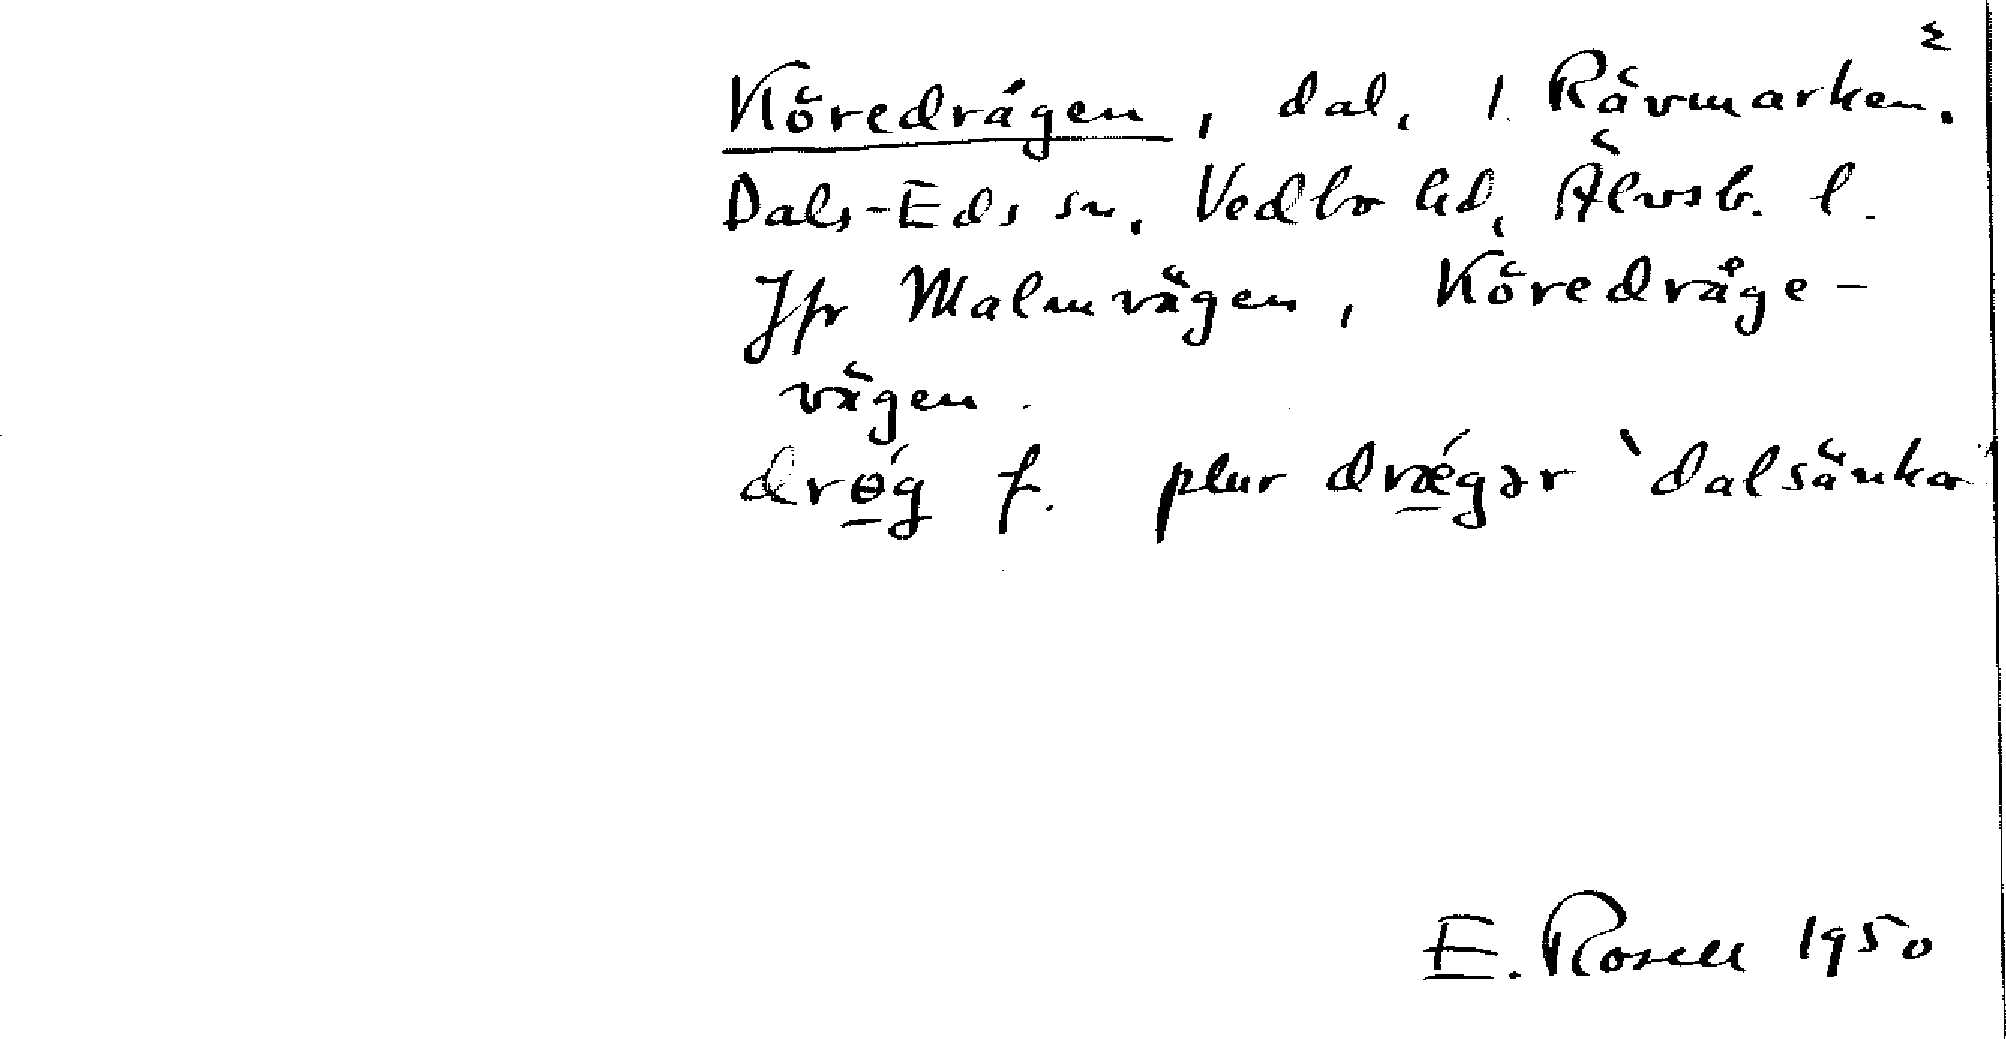 2
Köredrågen, dal, 1. Rävmarken,
Dals-Eds sn, Vedbo hd, Älvsb. l.
Jfr Malmvägen, Köredråge-
vägen.
drǿg f. plur drǽgər 'dalsänka'
E. Rosell 1950